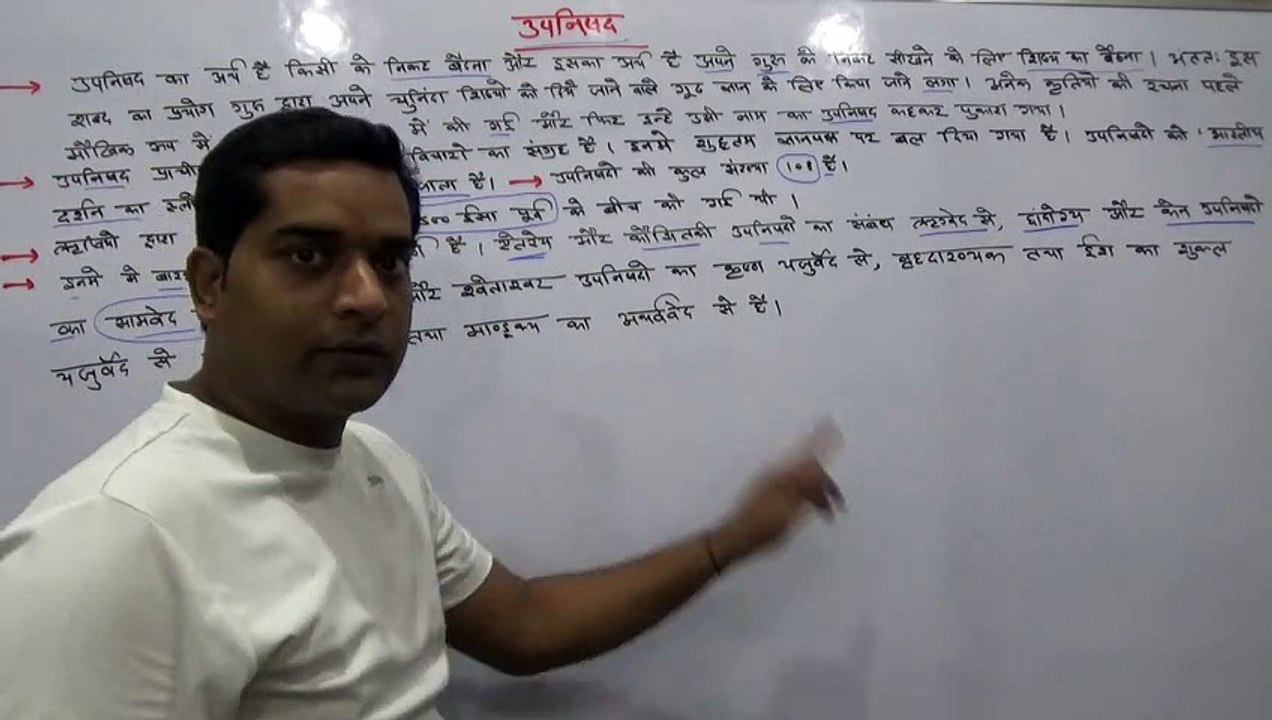 उपनिषद
→ उपनिषद का अर्थ है किसी के निकट बैठना और इसका अर्थ है अपने गुरु के निकट सीखने के लिए शिष्य का बैठना। अंततः इस
शब्द का प्रयोग गुरु द्वारा अपने चुनिंदा शिष्यो को दिये जाने वाले गूढ ज्ञान के लिए किया जाने लगा। अनेक कृतियो की रचना पहले
मौखिक रूप में में की गई और फिर इन्हे उसी नाम का उपनिषद कहकर पुकारा गया।
→ उपनिषद प्राची विचारो का संग्रह है। इनमे ज्ञानपक्ष पर बल दिया गया है। उपनिषदो को भारतीय
दर्शन का स्त्रो जाता है। → उपनिषदो की कुल संख्या 108 है।
→ ऋषियो द्वारा 500 ईसा पूर्व के बीच की गई थी।
→ इनमे से बारह है। ऐतरेय और कौषितकी उपनिषदो का संबंध ऋग्वेद से, छांदोग्य और केन उपनिषदो
का सामवेद और श्वेताश्वर उपनिषदो का कृष्ण यजुर्वेद से, बृहदारण्यक तथा ईश का शुक्ल
यजुर्वेद से तथा माण्डूक्य का अथर्ववेद से है।